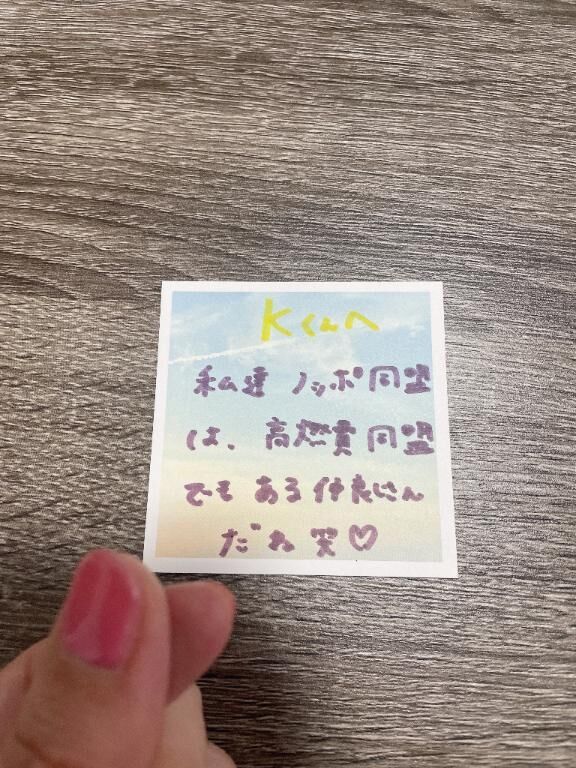 Kくんへ
私達 ノッポ同盟
は、高燃費同盟
でも ある仲良
だね 笑♡